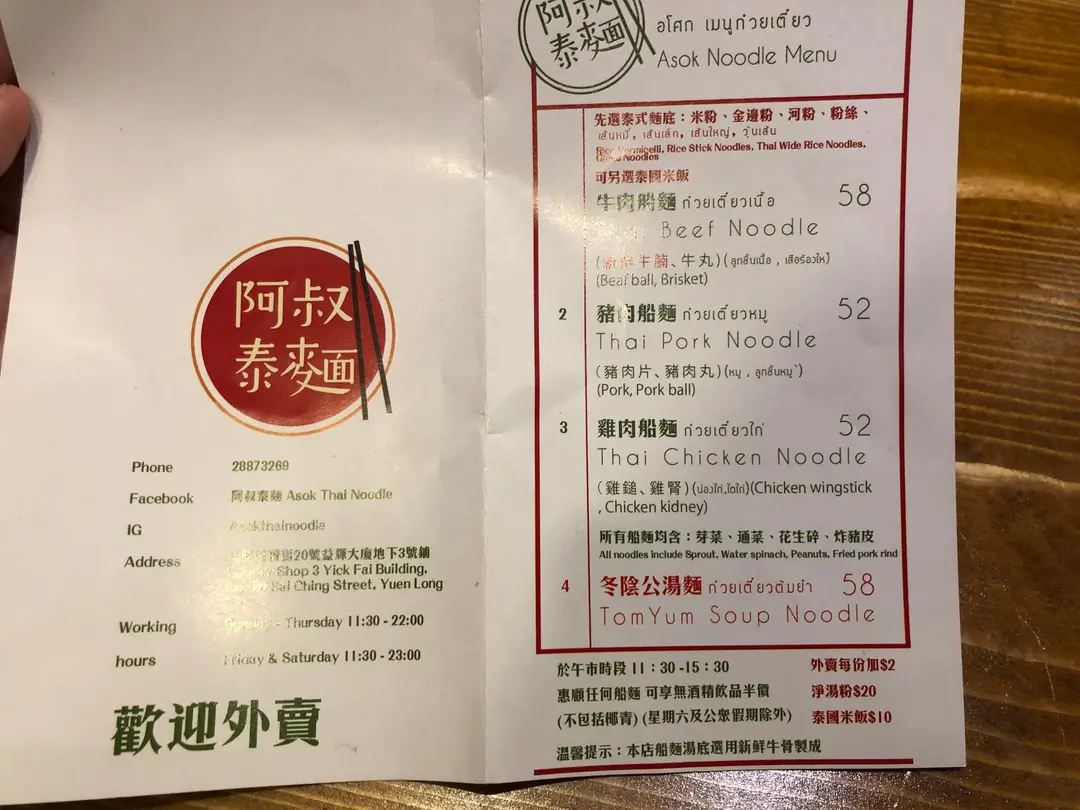 阿叔
泰麵
Phone 28873269
Facebook 阿叔泰麵 Asok Thai Noodle
IG Asokthainoodle
Address 街20號益輝大廈地下3號鋪
Shop 3 Yick Fai Building,
Sai Ching Street, Yuen Long
Working - Thursday 11:30 - 22:00
hours Friday & Saturday 11:30 - 23:00
歡迎外賣
阿叔
泰麵
อโศก เมนูก๋วยเตี๋ยว
Asok Noodle Menu
先選泰式麵底：米粉、金邊粉、河粉、粉絲、
เส้นหมี่, เส้นเล็ก, เส้นใหญ่, วุ้นเส้น
Rice Vermicelli, Rice Stick Noodles, Thai Wide Rice Noodles,
Noodles
可另選泰國米飯
1 牛肉船麵 ก๋วยเตี๋ยวเนื้อ 58
Thai Beef Noodle
(牛腩、牛丸) (ลูกชิ้นเนื้อ , เสือร้องไห้)
(Beaf ball, Brisket)
2 豬肉船麵 ก๋วยเตี๋ยวหมู 52
Thai Pork Noodle
(豬肉片、豬肉丸) (หมู , ลูกชิ้นหมู)
(Pork, Pork ball)
3 雞肉船麵 ก๋วยเตี๋ยวไก่ 52
Thai Chicken Noodle
(雞鎚、雞腎) (น่องไก่,ไตไก่)(Chicken wingstick
, Chicken kidney)
所有船麵均含：芽菜、通菜、花生碎、炸豬皮
All noodles include Sprout, Water spinach, Peanuts, Fried pork rind
4 冬陰公湯麵 ก๋วยเตี๋ยวต้มยำ 58
TomYum Soup Noodle
於午市時段 11：30 -15：30 外賣每份加$2
惠顧任何船麵 可享無酒精飲品半價 淨湯粉$20
(不包括椰青) (星期六及公眾假期除外) 泰國米飯$10
溫馨提示：本店船麵湯底選用新鮮牛骨製成